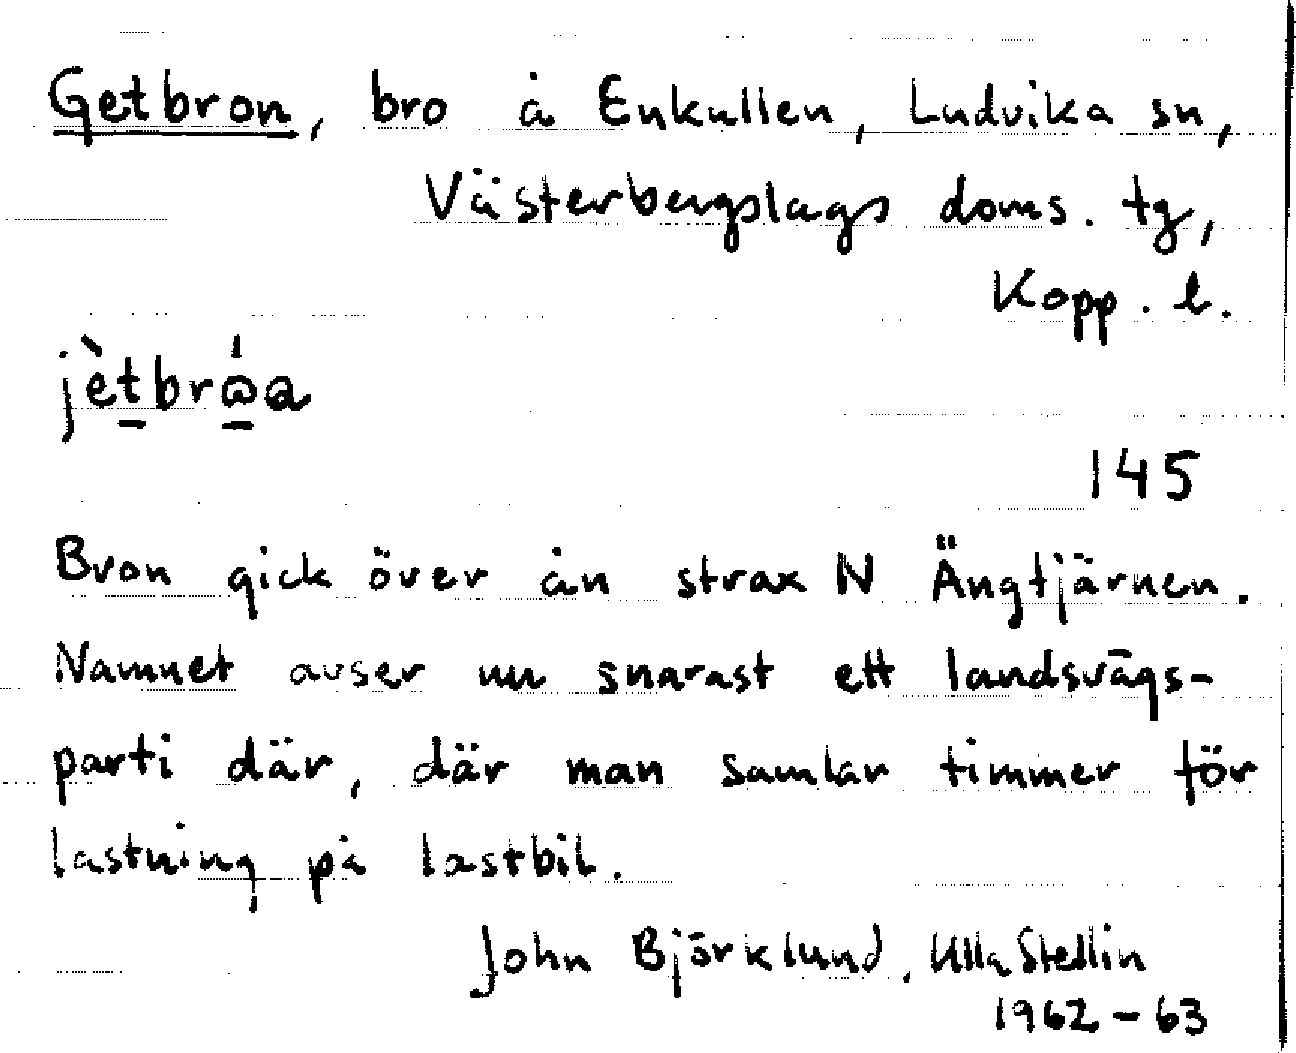 Getbron, bro å Enkullen, Ludvika sn,
Västerbergslags doms. tg,
Kopp. l.
145
Bron gick över ån strax N Ängtjärnen.
Namnet avser nu snarast ett landsvägs-
parti där, där man samlar timmer för
lastning på lastbil.
John Björklund, Ulla Stedlin
1962-63